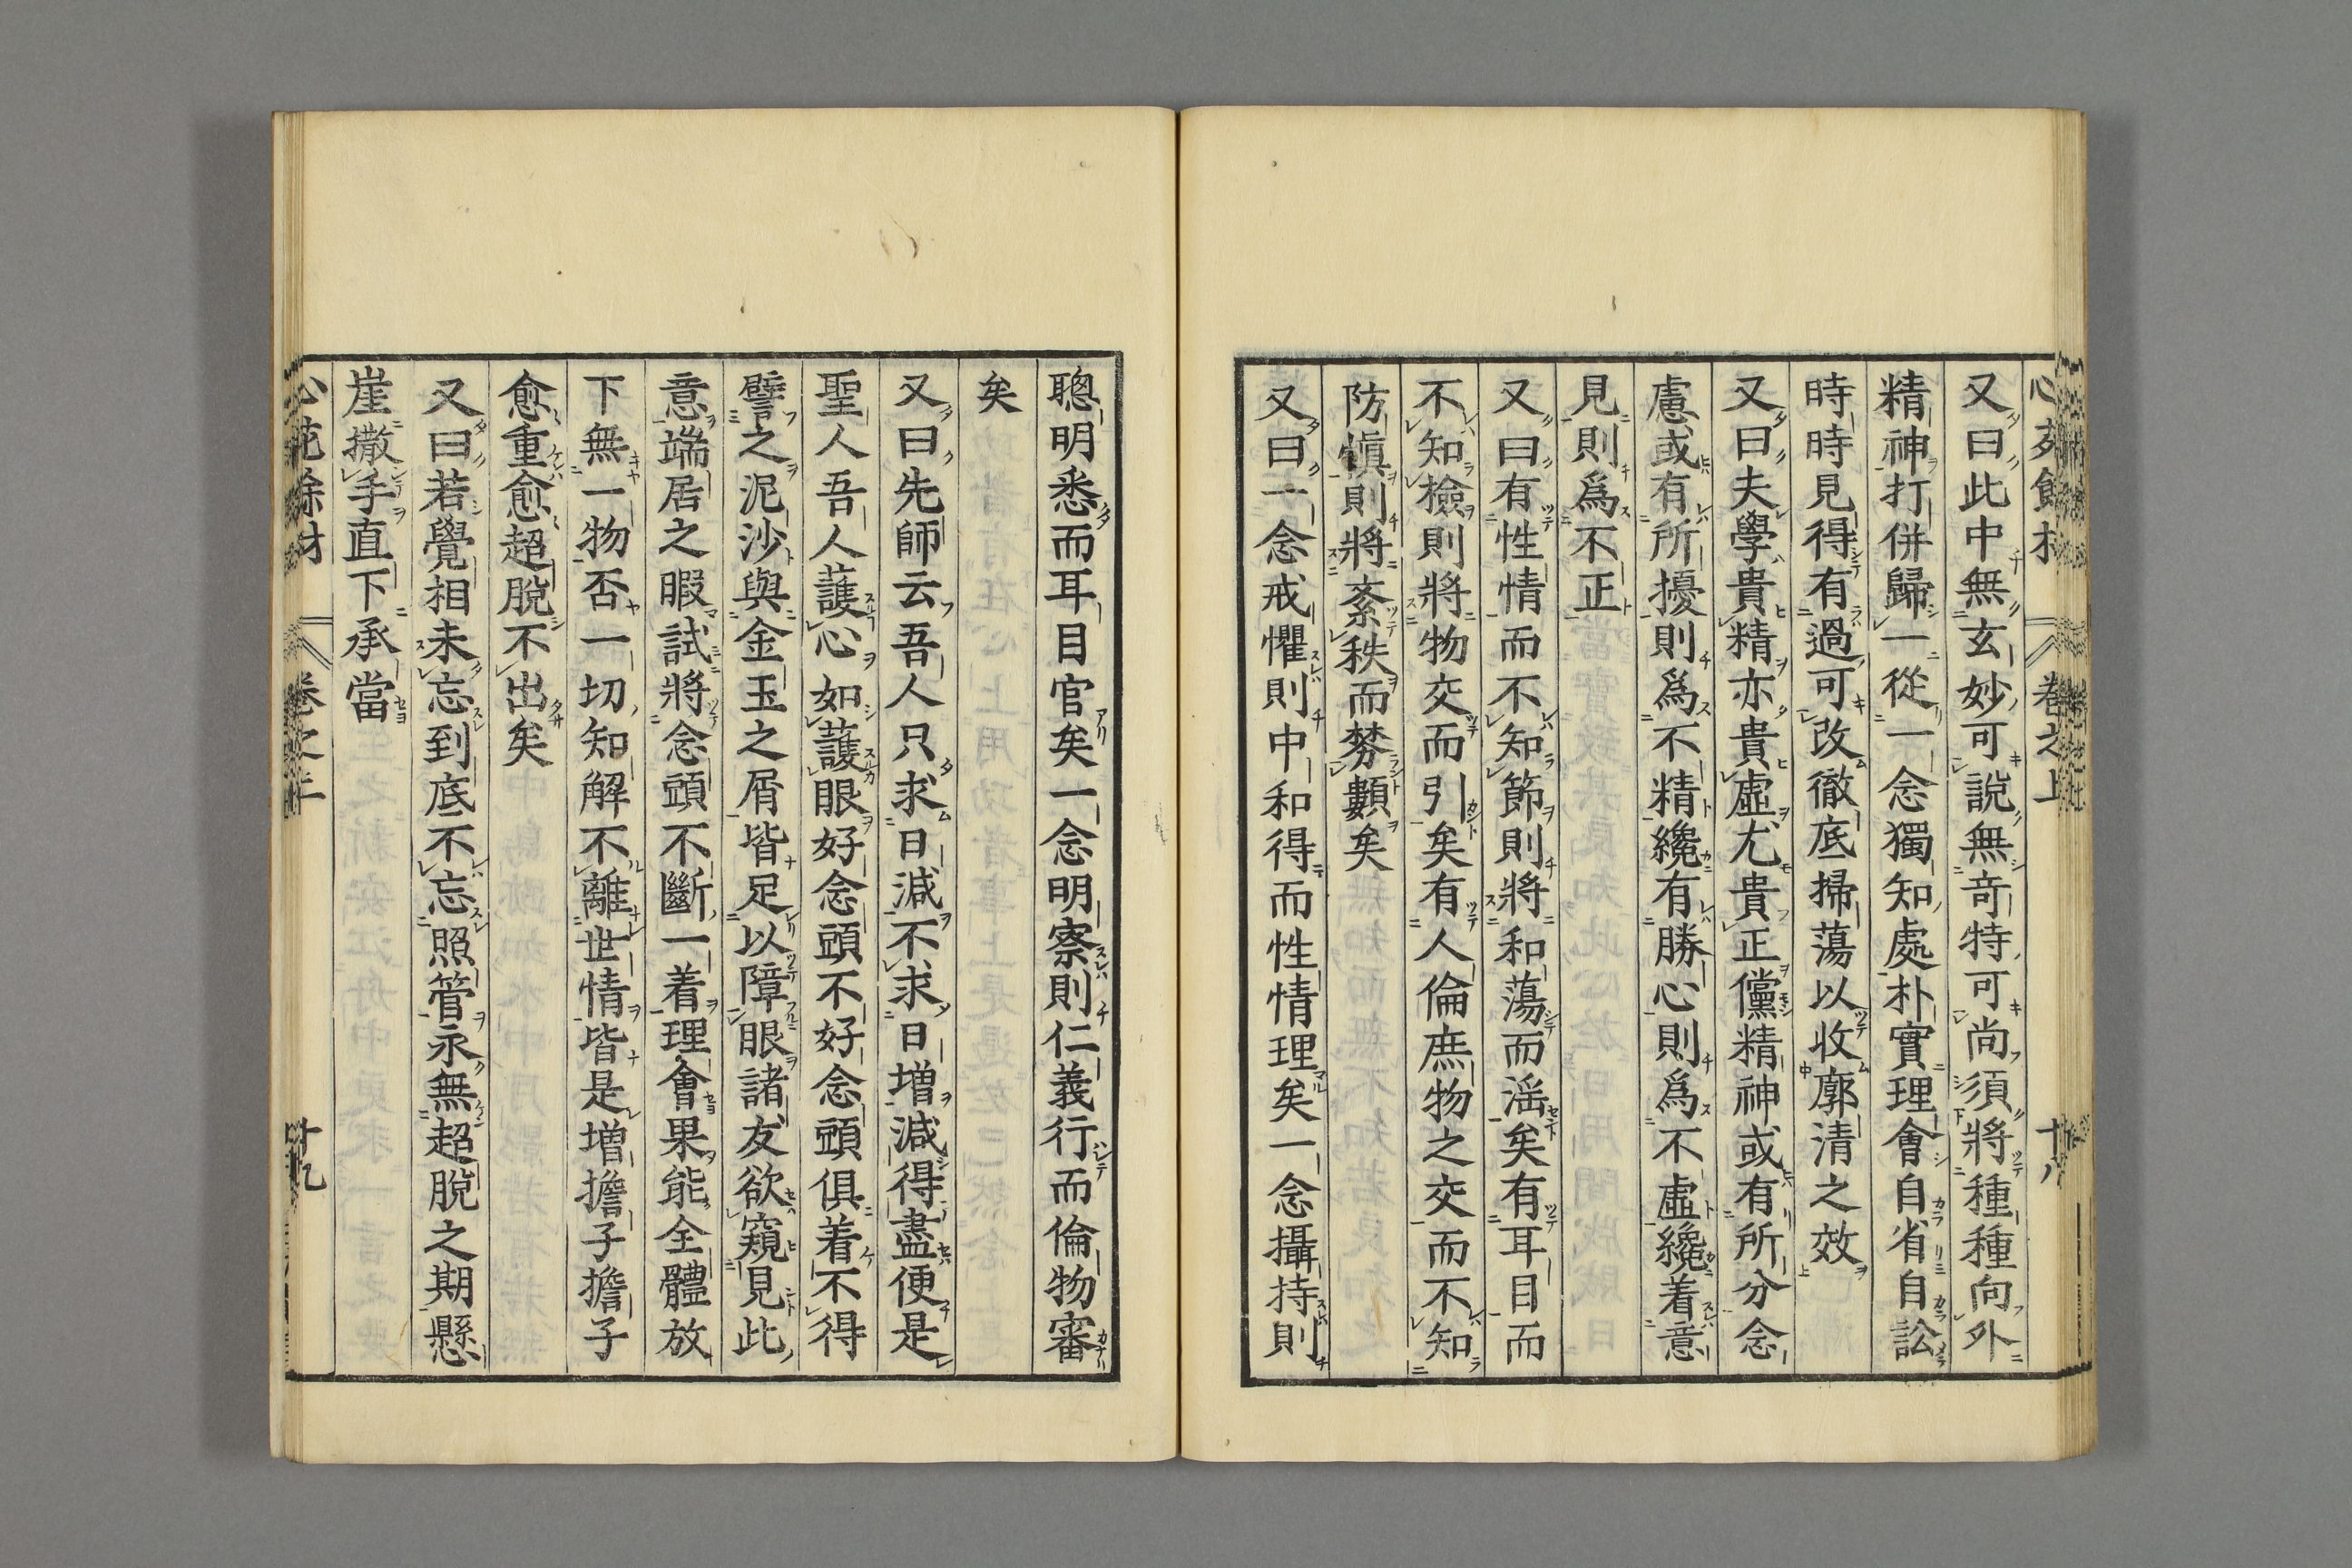 又曰此中無玄妙可説無奇特可尚須將種種向外
精神打併歸一從一念獨知處朴實理會自省自訟
時時見得有過可改徹底掃蕩以收廓清之效
又曰夫學貴精亦貴虛尤貴正儻精神或有所分念
慮或有所擾則爲不精纔有勝心則爲不虛纔着意
見則爲不正
又曰有性情而不知節則將和蕩而滛矣有耳目而
不知檢則將物交而引矣有人倫庶物之交而不知
防愼則將紊秩而棼斁矣
又曰一念戒懼則中和得而性情理矣一念攝持則
聰明悉而耳目官矣一念明察則仁義行而倫物審
矣
又曰先師云吾人只求日減不求日增減得盡便是
聖人吾人護心如護眼好念頭不好念頭俱着不得
譬之泥沙與金玉之屑皆足以障眼諸友欲窺見此
意端居之暇試將念頭不斷一着理會果能全體放
下無一物否一切知解不離世情皆是增擔子擔子
愈重愈超脫不出矣
又曰若覺相未忘到底不忘照管永無超脫之期懸
崖撒手直下承當
卷之上
十八
十九